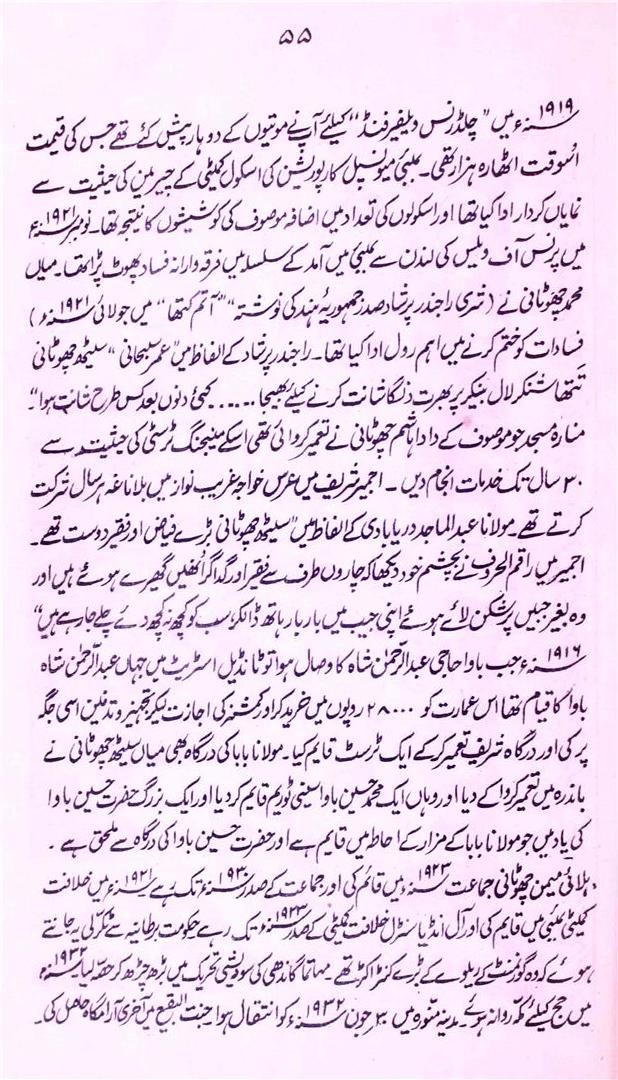 ۵۵
۱۹۱۹؁ء میں "چلڈرنس ویلفیر فنڈ" کیلئے آپ نے موتیوں کے دو ہار پیش کئے تھے جس کی قیمت
اُسوقت اٹھارہ ہزار تھی۔ بمبئی میونسپل کارپوریشن کی اسکول کمیٹی کے چیرمین کی حیثیت سے
نمایاں کردار ادا کیا تھا اور اسکولوں کی تعداد میں اضافہ موصوف کی کوشیشوں کا نتیجہ تھا۔ نومبر ۱۹۲۱؁ء
میں پرنس آف ویلس کی لندن سے بمبئی میں آمد کے سلسلہ میں فرقہ وارانہ فساد پھوٹ پڑا تھا۔ میاں
محمد چھوٹانی نے (شری راجندر پرشاد صدر جمہوریۂ ہند کی نوشتہ "آتم کتھا" میں جولائی ۱۹۲۱؁ء)
فسادات کو ختم کرنے میں اہم رول ادا کیا تھا۔ راجندر پرشاد کے الفاظ میں "عمر سبحانی" سیٹھ چھوٹانی
تتھا شنکر لال بینکر پربھرت دنگا شانت کرنے کیلئے بھیجا ...... کئی دنوں بعد کس طرح شانت ہوا"۔
منارہ مسجد جو موصوف کے دادا ہاشم چھوٹانی نے تعمیر کروائی تھی اسکے منیجنگ ٹرسٹی کی حیثیت سے
۳۰ سال تک خدمات انجام دیں۔ اجمیر شریف میں عرس خواجہ غریب نواز میں بلا ناغہ ہر سال شرکت
کرتے تھے۔ مولانا عبد الماجد دریابادی کے الفاظ میں "سیٹھ چھوٹانی بڑے فیاض اور فقیر دوست تھے۔
اجمیر میں راقم الحروف نے بچشم خود دیکھا کہ چاروں طرف سے فقیر اور گداگر اُنھیں گھیرے ہوئے ہیں اور
وہ بغیر جبیں پر شکن لائے ہوئے اپنی جیب میں بار بار ہاتھ ڈالکر سب کو کچھ نہ کچھ دے چلے جارہے ہیں"
۱۹۱۶؁ء جب باوا حاجی عبد الرحمٰن شاہ کا وصال ہوا تو ٹانڈیل اسٹریٹ میں جہاں عبد الرحمٰن شاہ
باوا کا قیام تھا اس عمارت کو ۲۸۰۰۰ روپوں میں خرید کر اور کمشنر کی اجازت لیکر تجہیز و تدفین اسی جگہ
پر کی اور درگاہ شریف تعمیر کرکے ایک ٹرسٹ قایم کیا۔ مولانا بابا کی درگاہ بھی میاں سیٹھ چھوٹانی نے
باندرہ میں تعمیر کروا کے دیا اور وہاں ایک محمد حسین باوا سینی ٹوریم قایم کردیا اور ایک بزرگ حضرت حسین باوا
کی یاد میں جو مولانا بابا کے مزار کے احاطہ میں قایم ہے اور حضرت حسین باوا کی درگاہ سے ملحق ہے۔
ہلائی میمن چھوٹانی جماعت ۱۹۲۳؁ء میں قائم کی اور جماعت کے صدر ۱۹۳۰؁ء تک رہے ۱۹۲۱؁ء میں خلافت
کمیٹی بمبئی میں قایم کی اور آل انڈیا سنٹرل خلافت کمیٹی کے صدر ۱۹۲۳؁ء تک رہے حکومت برطانیہ سے ٹکر لی یہ جانتے
ہوئے کہ وہ گورنمنٹ کے ریلوے کے بڑے کنٹراکٹر تھے۔ مہاتما گاندھی کی سودیشی تحریک میں بڑھ چڑھ کر حصّہ لیا۔ ۱۹۳۲؁ء
میں حج کیلئے مکّہ روانہ ہوئے۔ مدینہ منوّرہ میں ۳ جون ۱۹۳۲؁ء کو انتقال ہوا۔ جنت البقیع میں آخری آرامگاہ حاصل کی۔